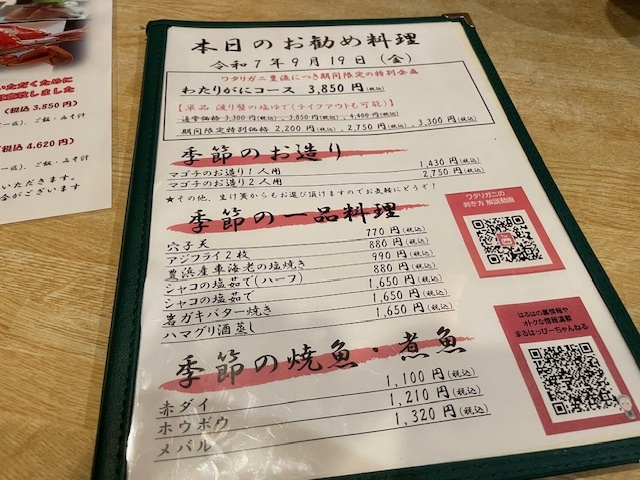 本日のお勧め料理
令和7年9月19日(金)
ワタリガニ豊漁につき期間限定の特別企画
わたりがにコース 3,850円(税込)
【単品 渡り蟹の塩ゆで(テイクアウトも可能)】
通常価格 3,300円(税込)、3,850円(税込)、4,400円(税込)
期間限定特別価格 2,200円(税込)、2,750円(税込)、3,300円(税込)
季節のお造り
マゴチのお造り1人用 1,430円(税込)
マゴチのお造り2人用 2,750円(税込)
★その他、生け簀からもお選び頂けますのでお気軽にどうぞ!
季節の一品料理
穴子天 770円(税込)
アジフライ2枚 880円(税込)
豊浜産車海老の塩焼き 990円(税込)
シャコの塩茹で(ハーフ) 880円(税込)
シャコの塩茹で 1,650円(税込)
岩ガキバター焼き 1,650円(税込)
ハマグリ酒蒸し 1,650円(税込)
季節の焼魚・煮魚
赤ダイ 1,100円(税込)
ホウボウ 1,210円(税込)
メバル 1,320円(税込)
ワタリガニの
剥き方 解説動画
はるはの裏情報や
オトクな情報満載
まるはっぴーちゃんねる
いただくために
致しました
(税込 3,850円)
ご飯・みそ汁
税込 4,620円)
ご飯・みそ汁
いただきます。
合がございます